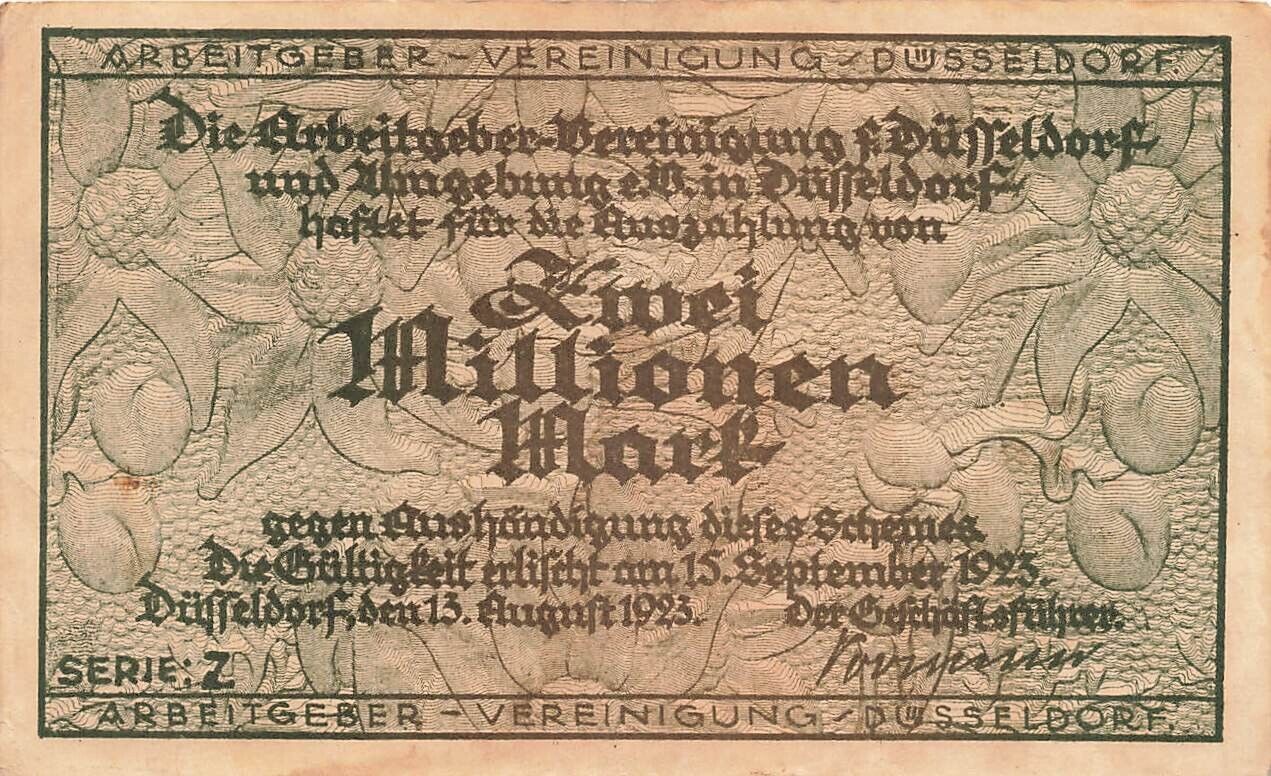 ARBEITGEBER - VEREINIGUNG - DÜSSELDORF.
Die Arbeitgeber-Vereinigung f. Düsseldorf
und Umgebung e.V. in Düsseldorf
haftet für die Auszahlung von
Zwei
Millionen
Mark
gegen Aushändigung dieses Scheines.
Die Gültigkeit erlischt am 15. September 1923.
Düsseldorf, den 13. August 1923. Der Geschäftsführer.
SERIE: Z
ARBEITGEBER - VEREINIGUNG - DÜSSELDORF.